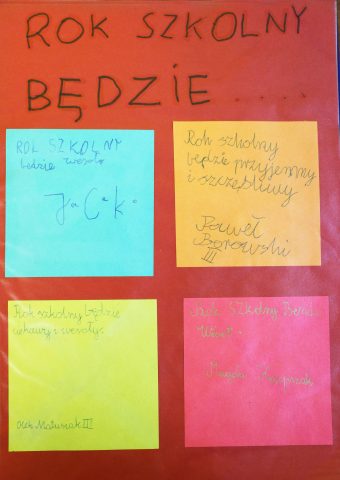 ROK SZKOLNY
BĘDZIE .....
ROK SZKOLNY
będzie wesoły
JaCek
Rok szkolny
będzie przyjemny
i szczęśliwy
Paweł
Borowski
III
Rok szkolny będzie
ciekawy i wesoły.
Olek Matusiak III
Rok Szkolny
Magda